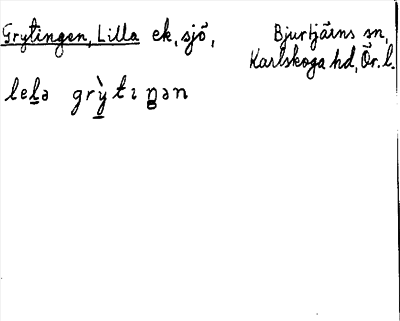 Grytingen, Lilla ek, sjö,
Bjurtjärns sn,
Karlskoga hd, Ör. l.
lelə grỳtıŋən